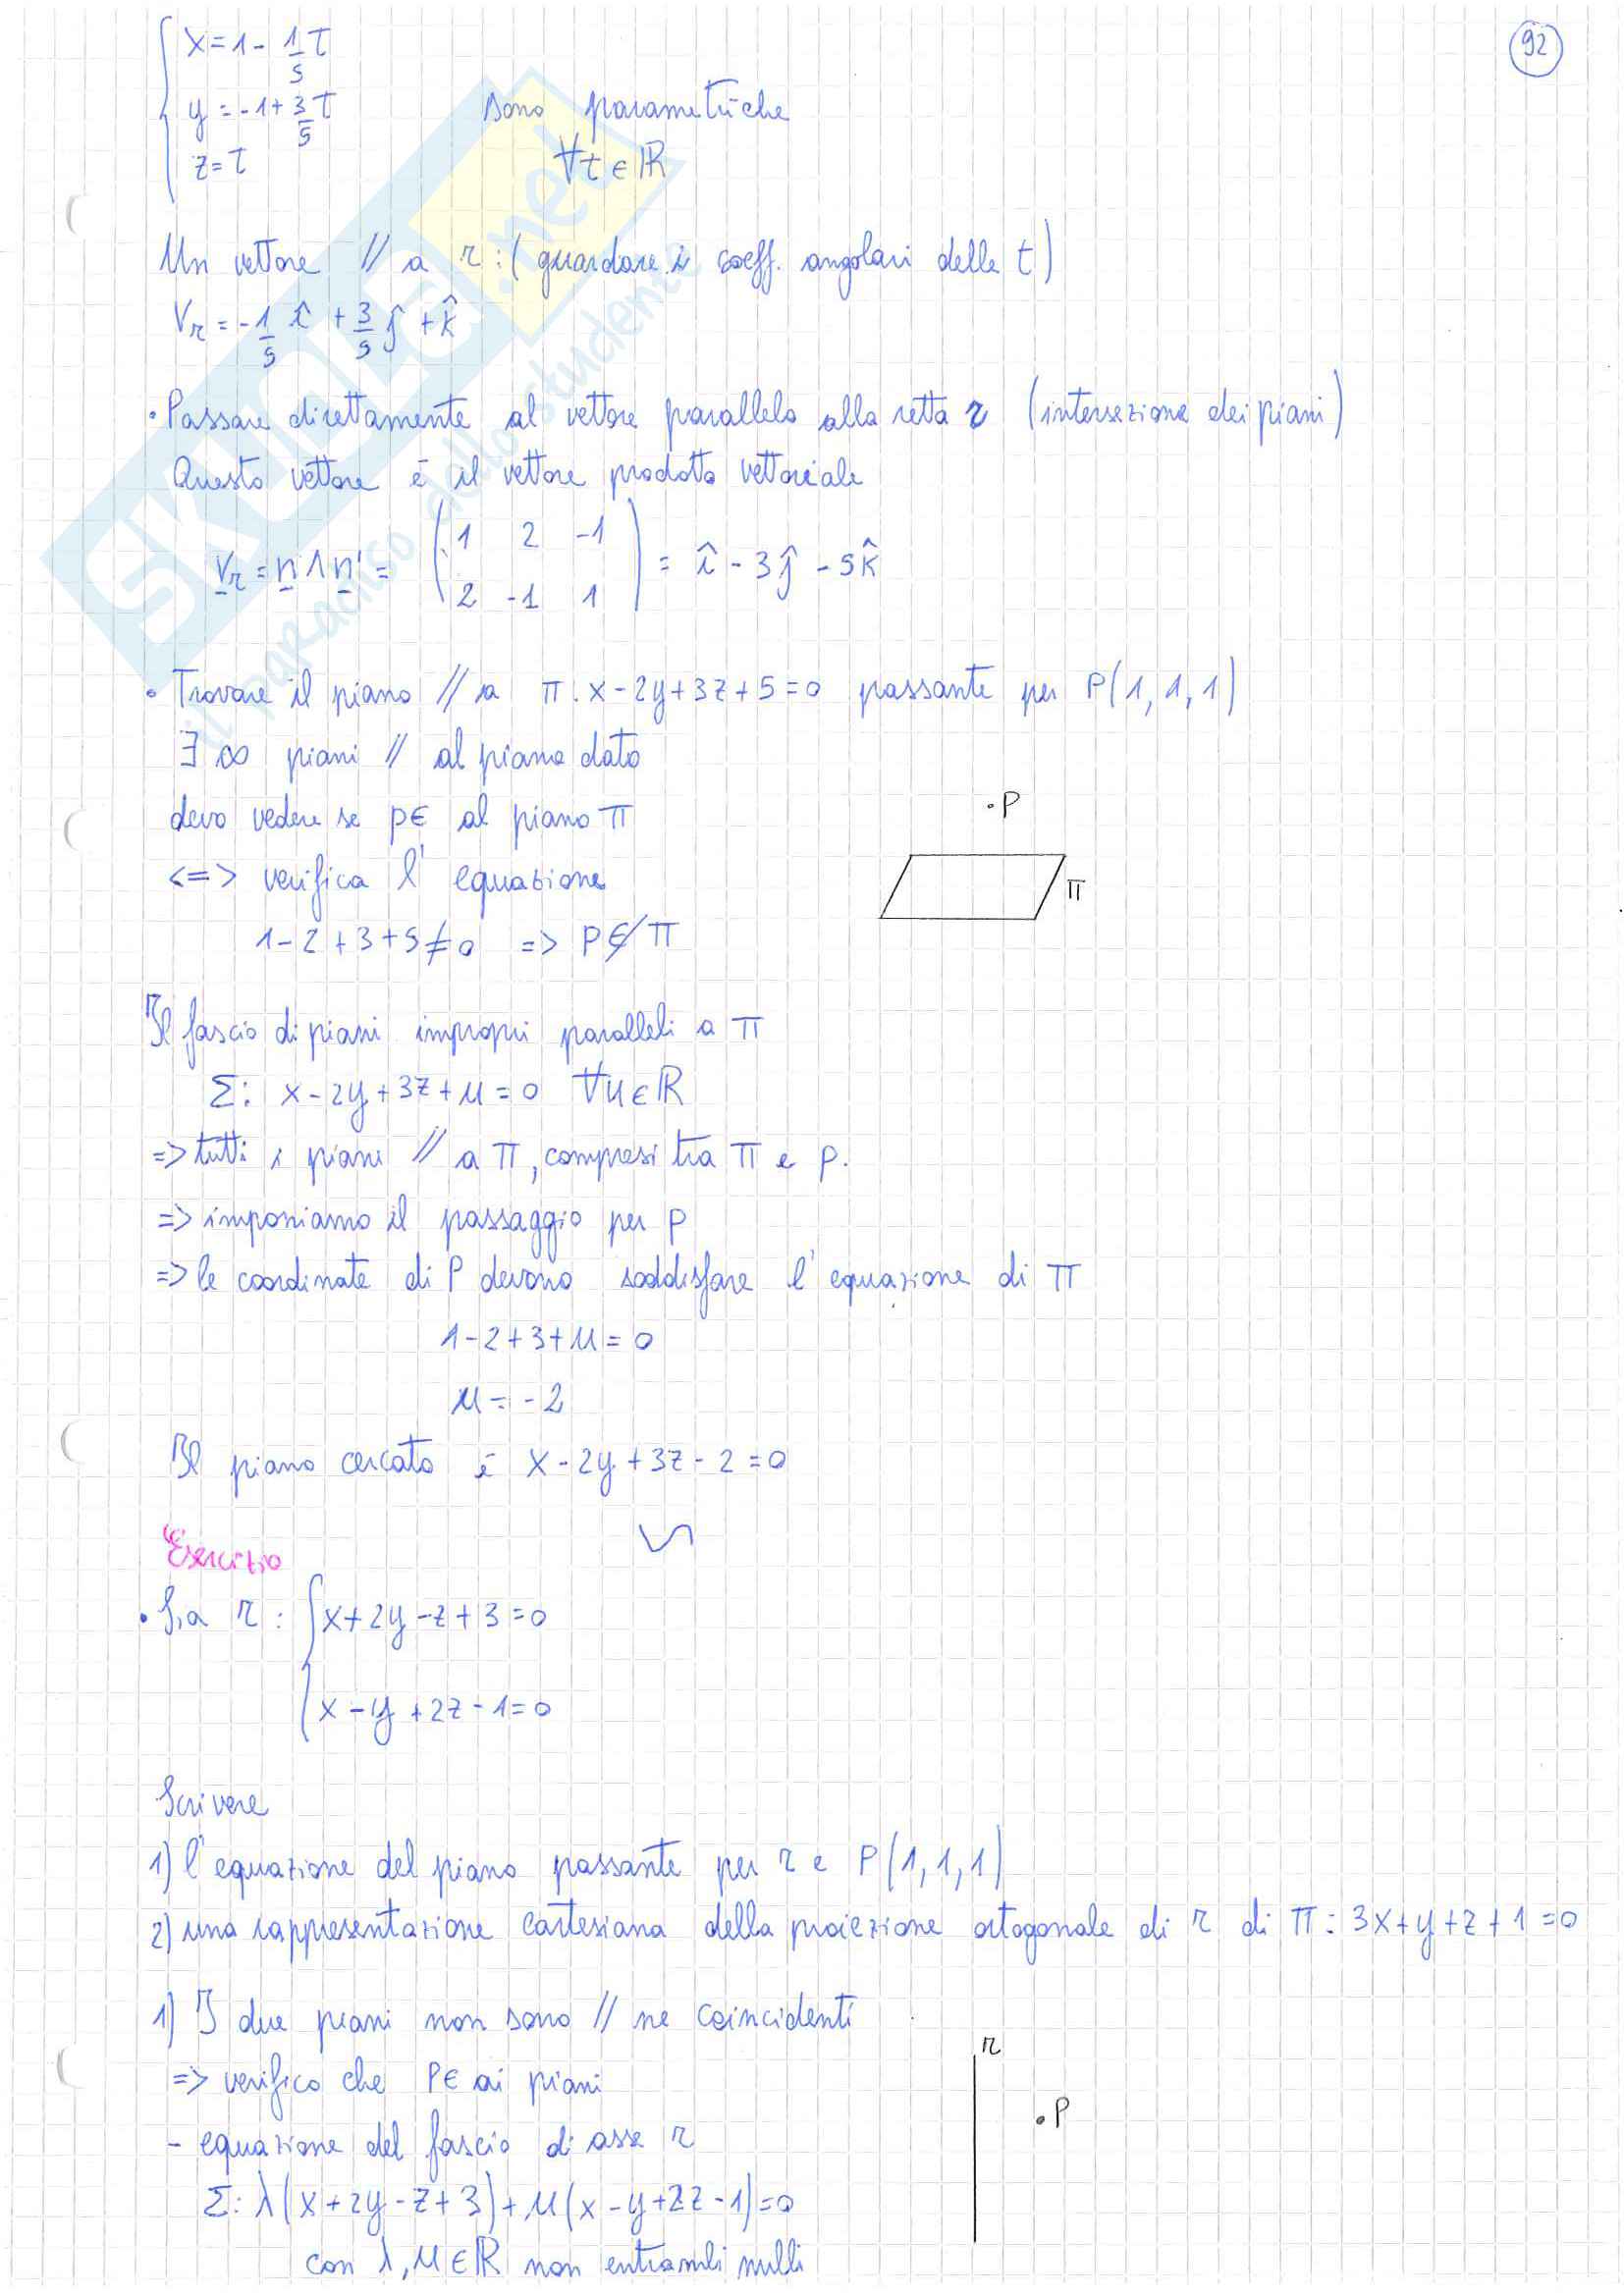 92
x = 1 - 1/5 t
y = -1 + 3/5 t
z = t
sono parametriche
∀t ∈ ℝ
Un vettore // a r: (guardare i coeff. angolari delle t)
Vr = -1/5 î + 3/5 ĵ + k̂
• Passare direttamente al vettore parallelo alla retta r (intersezione dei piani)
Questo vettore è il vettore prodotto vettoriale
Vr = n ∧ n' = ( 1 2 -1
2 -1 1 ) = î - 3ĵ - 5k̂
• Trovare il piano // a π: x - 2y + 3z + 5 = 0 passante per P(1, 1, 1)
∃ ∞ piani // al piano dato
devo vedere se p∈ al piano π
<=> verifica l'equazione
1 - 2 + 3 + 5 ≠ 0 => P∉π
•P
π
Il fascio di piani impropri paralleli a π
Σ: x - 2y + 3z + μ = 0 ∀μ∈ℝ
=> tutti i piani // a π, compresi tra π e p.
=> imponiamo il passaggio per p
=> le coordinate di P devono soddisfare l'equazione di π
1 - 2 + 3 + μ = 0
μ = -2
Il piano cercato è x - 2y + 3z - 2 = 0
Esercizio
• Sia r: { x + 2y - z + 3 = 0
x - y + 2z - 1 = 0
Scrivere
1) l'equazione del piano passante per r e P(1, 1, 1)
2) una rappresentazione cartesiana della proiezione ortogonale di r di π: 3x + y + z + 1 = 0
1) I due piani non sono // ne coincidenti
=> verifico che P∈ ai piani
- equazione del fascio di asse r
Σ: λ(x + 2y - z + 3) + μ(x - y + 2z - 1) = 0
con λ, μ ∈ ℝ non entrambi nulli
r
•P
SKUOLA.net
il paradiso dello studente